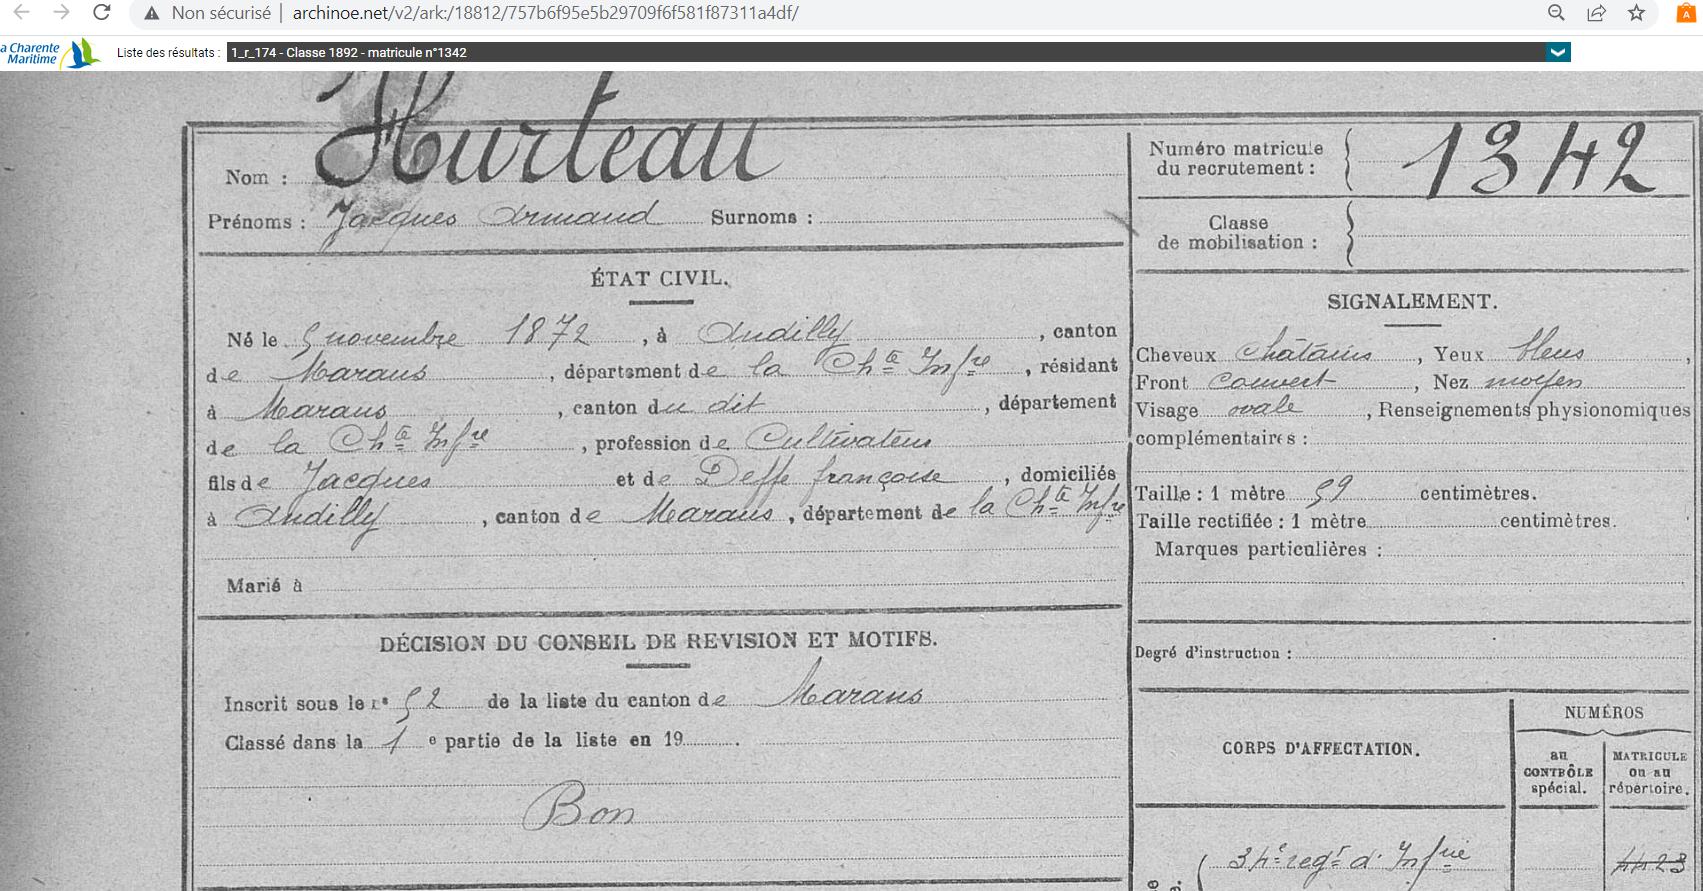 Non sécurisé | archinoe.net/v2/ark:/18812/757b6f95e5b29709f6f581f87311a4df/
a Charente
Maritime
Liste des résultats : 1_r_174 - Classe 1892 - matricule n°1342
Nom : Hurteau
Prénoms : Jacques Armand Surnoms :
ÉTAT CIVIL.
Né le 5 novembre 1872, à Andilly, canton
de Marans, département de la Chte Infre, résidant
à Marans, canton du dit, département
de la Chte Infre, profession de Cultivateur
fils de Jacques et de Deffe françoise, domiciliés
à Andilly, canton de Marans, département de la Chte Infre
Marié à
DÉCISION DU CONSEIL DE REVISION ET MOTIFS.
Inscrit sous le n° 52 de la liste du canton de Marans
Classé dans la 1e partie de la liste en 19 .
Bon
Numéro matricule
du recrutement : 1342
Classe
de mobilisation :
SIGNALEMENT.
Cheveux châtains, Yeux bleus,
Front couvert, Nez moyen
Visage ovale, Renseignements physionomiques
complémentaires :
Taille : 1 mètre 59 centimètres.
Taille rectifiée : 1 mètre centimètres.
Marques particulières :
Degré d'instruction :
CORPS D'AFFECTATION.
NUMÉROS
au
CONTRÔLE
spécial.
MATRICULE
ou au
répertoire.
34e regt d'Infrie 4423